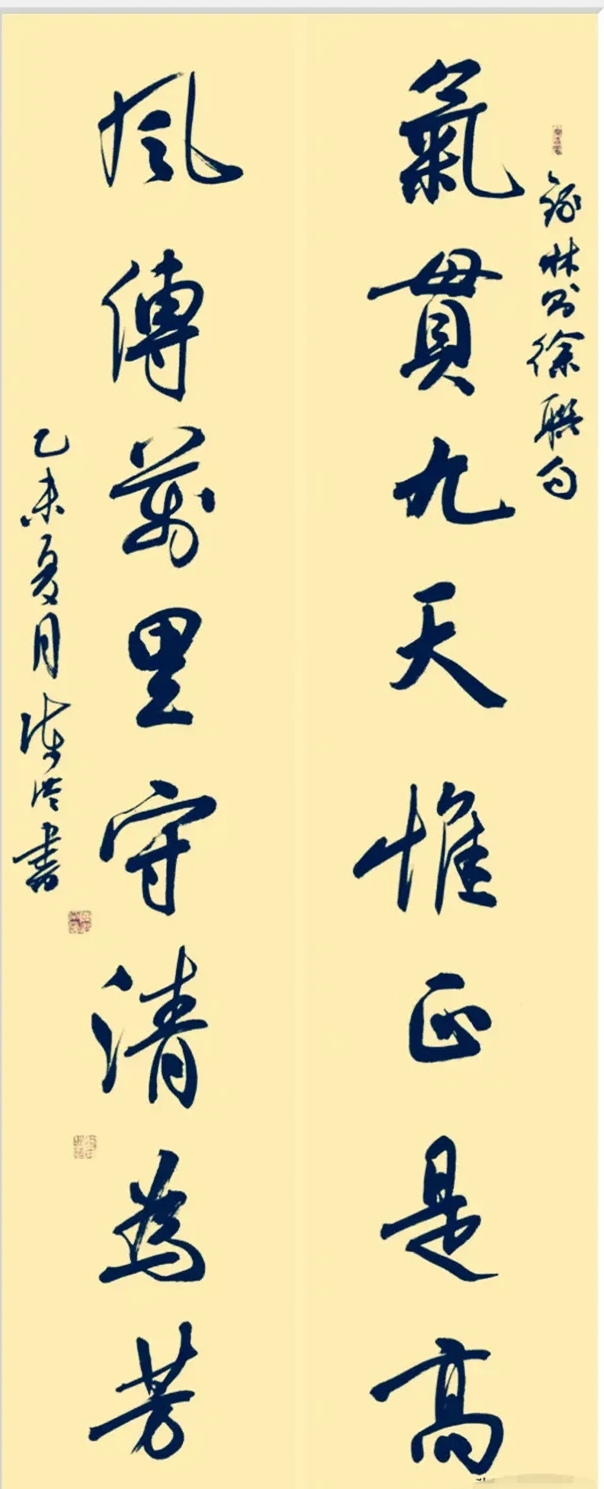 氣貫九天惟正是高
風傳萬里守清為芳
林 徐聯句
乙未夏月 書